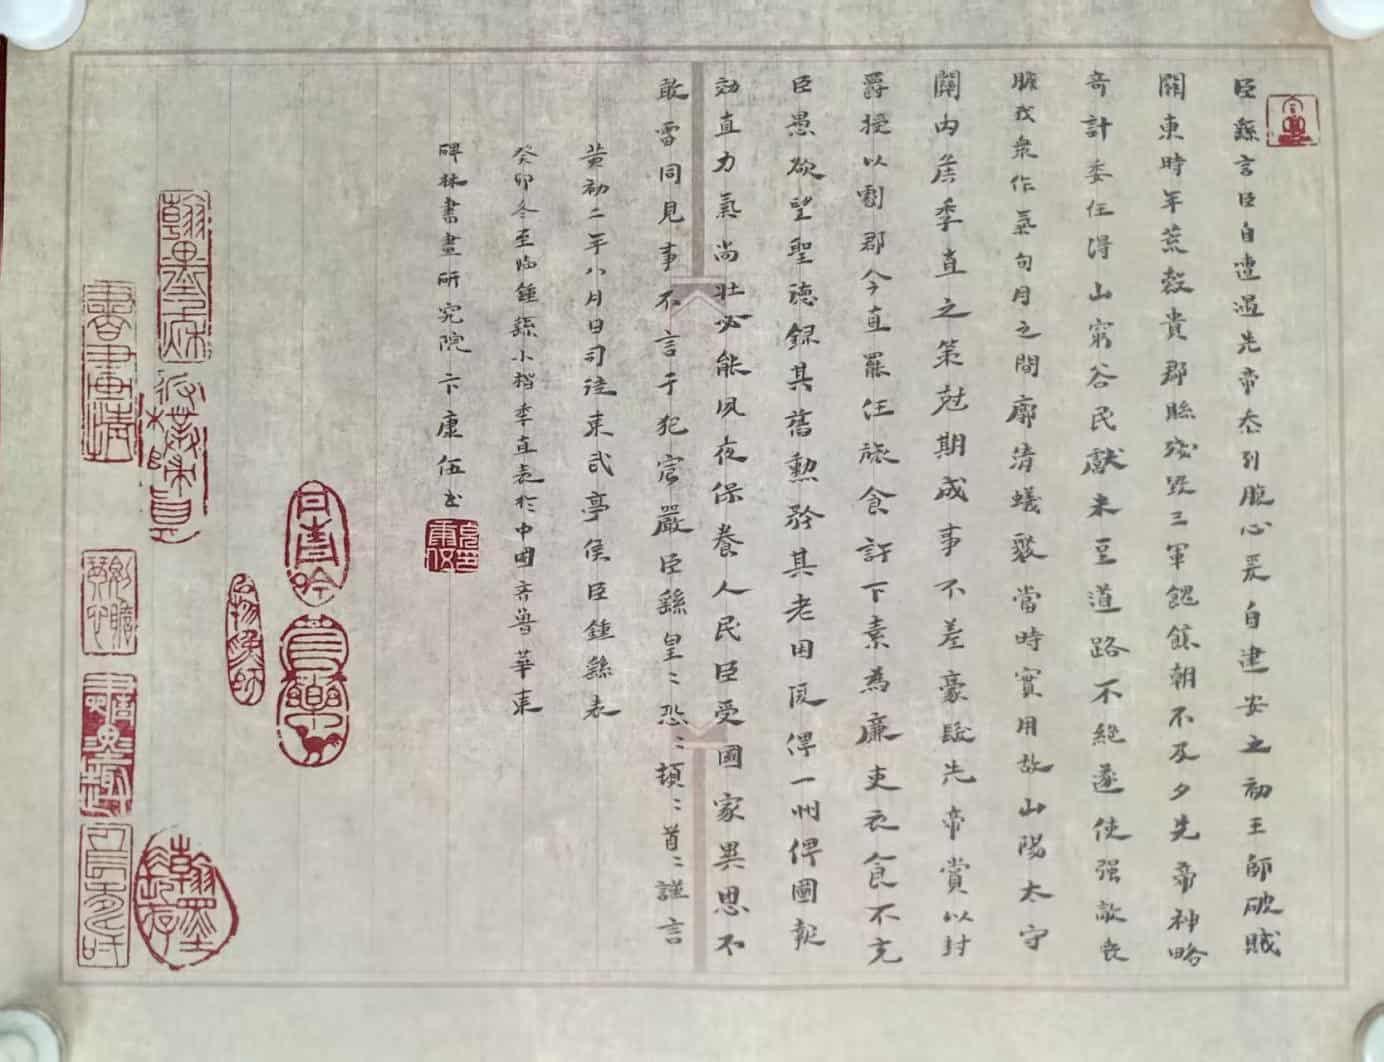 臣繇言臣自遭遇先帝忝列腹心爰自建安之初王師破賊
關東時年荒穀貴郡縣殘毀三軍餽餉朝不及夕先帝神略
奇計委任得山窮谷民獻米豆道路不絕遂使强敵喪
膽我衆作氣旬月之間廓清蟻聚當時實用故山陽太守
關內侯季直之策尅期成事不差豪髮先帝賞以封
爵授以劇郡今直罷任旅食許下素為廉吏衣食不充
臣愚欲望聖德録其舊勳矜其老困復俾一州俾圖報
効直力氣尚壯必能夙夜保養人民臣受國家異恩不
敢雷同見事不言干犯宸嚴臣繇皇〻恐〻頓〻首〻謹言
黃初二年八月日司徒東武亭侯臣鍾繇表
癸卯冬至臨鍾繇小楷季直表於中國齊魯華東
碑林書畫研究院卞康伍書